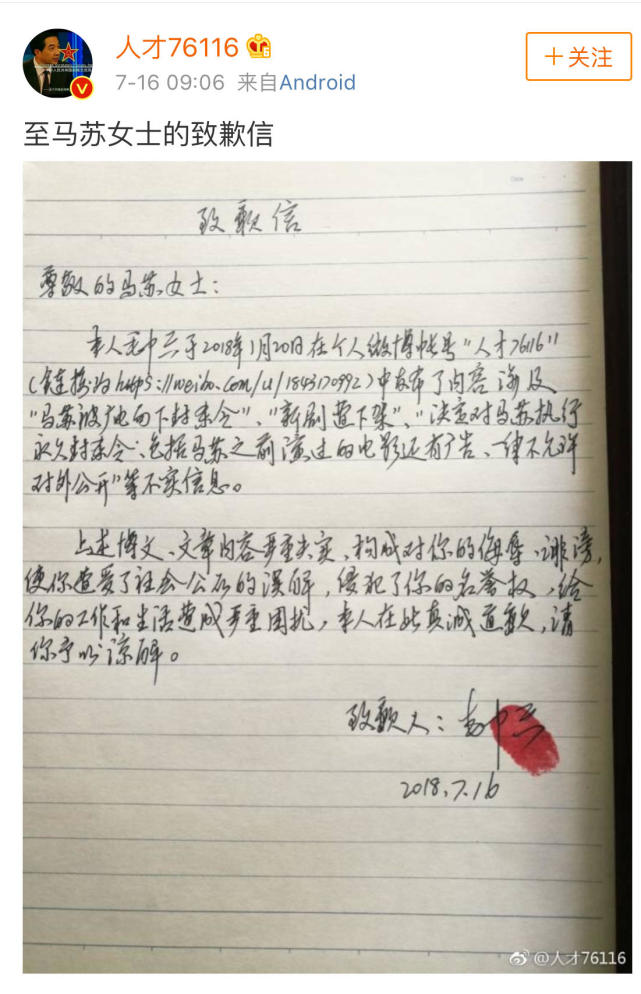 人才76116
+关注
7-16 09:06 来自Android
至马苏女士的致歉信
致歉信
尊敬的马苏女士:
本人于2018年1月20日在个人微博帐号"人才76116"
(链接为https://weibo.com/u/1843170992)中发布了内容涉及
"马苏被广电下封杀令"、"新剧遭下架"、"决定对马苏执行
永久封杀令:包括马苏之前演过的电影还有广告、一律不允许
对外公开"等不实信息。
上述博文、文章内容严重失实、构成对你的侮辱、诽谤,
使你遭受了社会公众的误解,侵犯了你的名誉权,给
你的工作和生活造成严重困扰,本人在此真诚道歉,请
你予以谅解。
致歉人:
2018.7.16
@人才76116